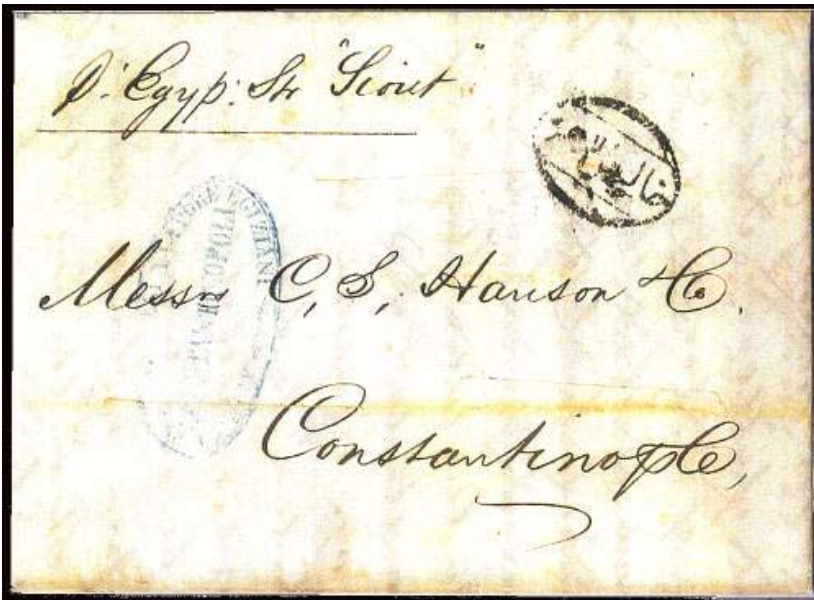 p. Egyp: Str "Siout"
Messrs C, S, Hanson & Co.
Constantinople,
EGIZIANE